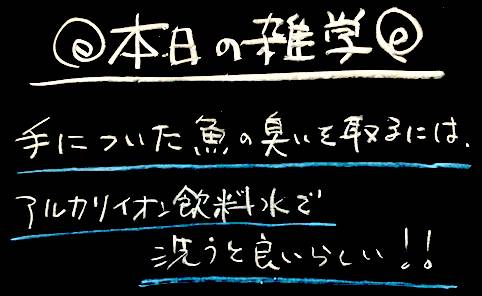 ◎本日の雑学◎
手についた魚の臭いを取るには、
アルカリイオン飲料水で
洗うと良いらしい!!